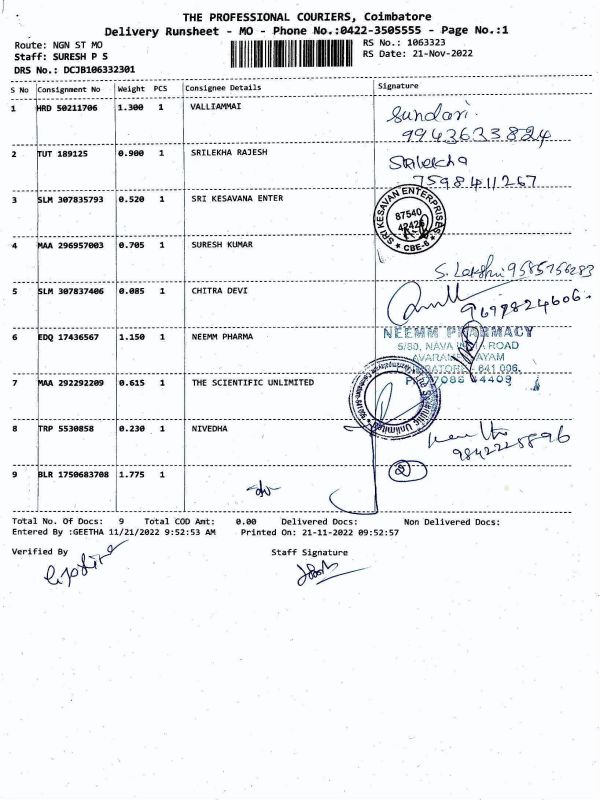 THE PROFESSIONAL COURIERS, Coimbatore
Delivery Runsheet - MO - Phone No.:0422-3505555 - Page No.:1
Route: NGN ST MO
RS No.: 1063323
Staff: SURESH P S
RS Date: 21-Nov-2022
DRS No.: DCJB106332301
S No Consignment No Weight PCS Consignee Details Signature
1 HRD 50211706 1.300 1 VALLIAMMAI
Sundari.
9943633824
2 TUT 189125 0.900 1 SRILEKHA RAJESH
Srilekha
7598411267
3 SLM 307835793 0.520 1 SRI KESAVANA ENTER
SRI KESAVAN ENTERPRISES
87540
42426
* CBE-6 *
4 MAA 296957003 0.705 1 SURESH KUMAR
S. Lakshmi 9585756283
5 SLM 307837406 0.085 1 CHITRA DEVI
9699824606.
6 EDQ 17436567 1.150 1 NEEMM PHARMA
NEEMM PHARMACY
5/80, NAVA ROAD
641 006.
7 MAA 292292209 0.615 1 THE SCIENTIFIC UNLIMITED
The Scientific Unlimited
8 TRP 5530858 0.230 1 NIVEDHA
9842225896
9 BLR 1750683708 1.775 1
2
Total No. Of Docs: 9 Total COD Amt: 0.00 Delivered Docs: Non Delivered Docs:
Entered By :GEETHA 11/21/2022 9:52:53 AM Printed On: 21-11-2022 09:52:57
Verified By Staff Signature